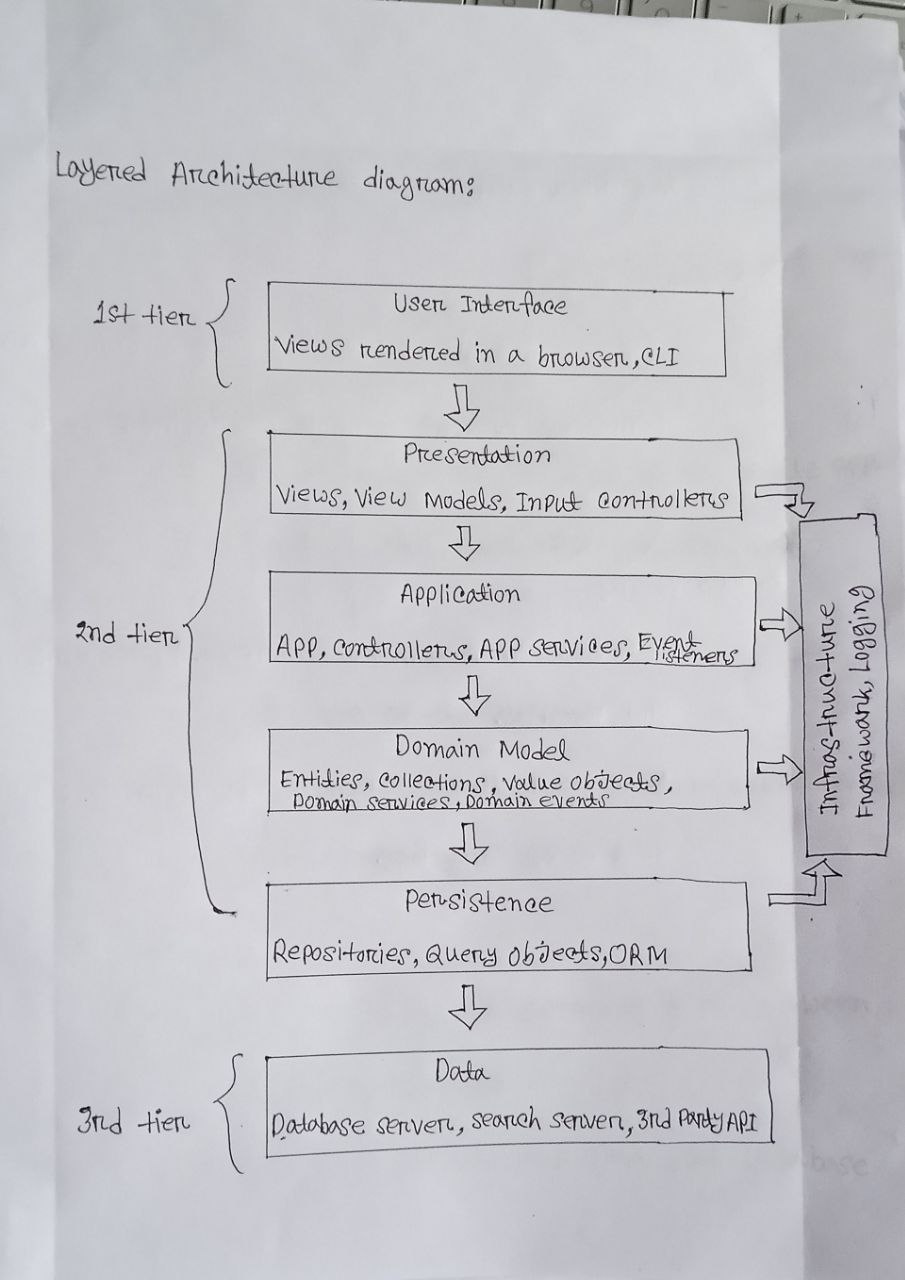 Layered Architecture diagram:
1st tier
User Interface
Views rendered in a browser, CLI
2nd tier
Presentation
Views, View Models, Input controllers
Application
APP, controllers, APP services, Event listeners
Domain Model
Entities, collections, value objects,
Domain services, Domain events
Persistence
Repositories, Query objects, ORM
Infrastructure
Framework, Logging
3rd tier
Data
Database server, search server, 3rd Party API